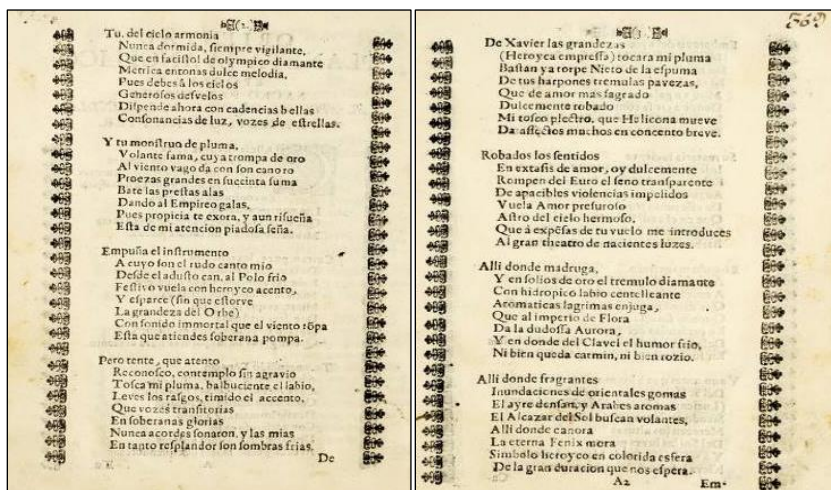 (2.)
Tu, del cielo armonia
Nunca dormida, siempre vigilante,
Que en facistol de olympico diamante
Metrica entonas dulce melodia,
Pues debes à los cielos
Generosos desvelos
Dispende ahora con cadencias bellas
Consonancias de luz, vozes de estrellas.
Y tu monstruo de pluma,
Volante fama, cuya trompa de oro
Al viento vago da con son canoro
Proezas grandes en succinta suma
Bate las prestas alas
Dando al Empireo galas,
Pues propicia te exora, y aun risueña
Esta de mi atencion piadosa seña.
Empuña el instrumento
A cuyo son el rudo canto mio
Desde el adusto can, al Polo frio
Festivo vuela con heroyco acento,
Y esparce (sin que estorve
La grandeza del Orbe)
Con sonido immortal que el viento rõpa
Esta que atiendes soberana pompa.
Pero tente, que atento
Reconosco, contemplo sin agravio
Tosca mi pluma, balbuciente el labio,
Leves los rasgos, timido el accento,
Que vozes transitorias
En soberanas glorias
Nunca acordes sonaron, y las mias
En tanto resplandor son sombras frias.
De
(3.)
569
De Xavier las grandezas
(Heroyca empressa) tocara mi pluma
Bastan ya torpe Nieto de la espuma
De tus harpones tremulas pavezas,
Que de amor mas sagrado
Dulcemente robado
Mi tosco plectro, que Helicona mueve
Da affectos muchos en concento breve.
Robados los sentidos
En extasis de amor, oy dulcemente
Rompen del Euro el seno transparente
De apacibles violencias impelidos
Vuela Amor presuroso
Astro del cielo hermoso,
Que á expẽsas de tu vuelo me introduces
Al gran theatro de nacientes luzes.
Alli donde madruga,
Y en folios de oro el tremulo diamante
Con hidropico labio centelleante
Aromaticas lagrimas enjuga,
Que al imperio de Flora
Da la dudossa Aurora,
Y en donde del Clavel el humor frio,
Ni bien queda carmin, ni bien rozio.
Alli donde fragrantes
Inundaciones de orientales gomas
El ayre densan, y Arabes aromas
El Alcazar del Sol buscan volantes,
Alli donde canora
La eterna Fenix mora
Simbolo heroyco en colorida esfera
De la gran duracion que nos espera.
A2
Em-